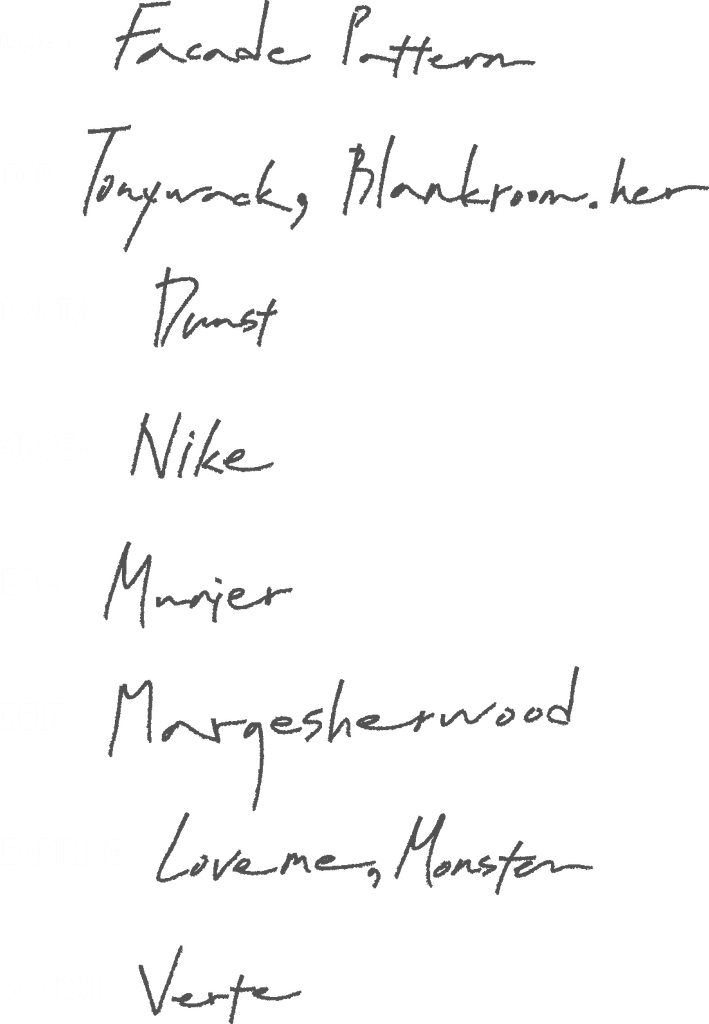 Facade Pattern
Tonywack, Blankroom.her
Dunst
Nike
Munjer
Margesherwood
Loveme, Monster
Verte